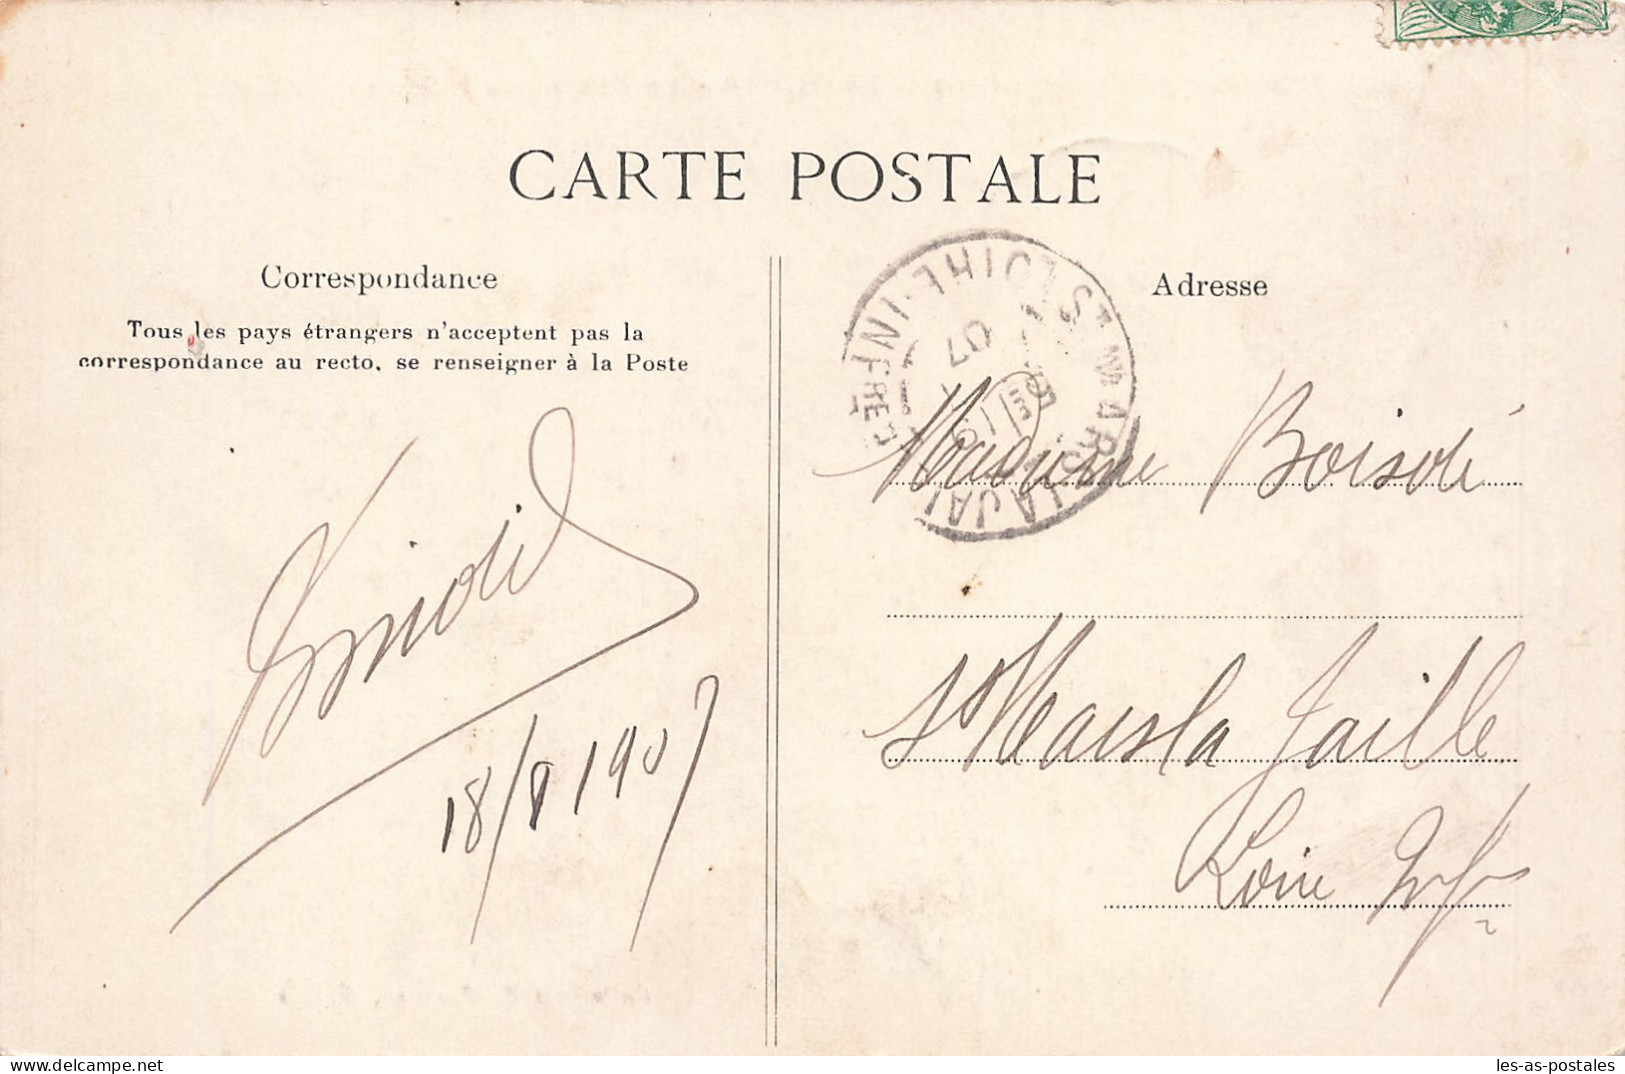 CARTE POSTALE
Correspondance
Tous les pays étrangers n'acceptent pas la
correspondance au recto, se renseigner à la Poste
18/8/1907
Adresse
Madame Boisdé
St Mars la Jaille
Loire Infre
ST MARS-LA-JAI
LOIRE-INFRE
07
delcampe.net
les-as-postales